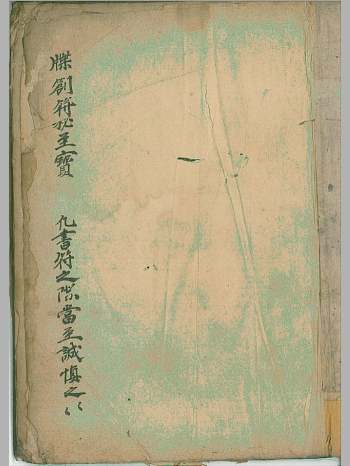 牒劄符秘至寶　凡書符之際當至誠慎之〻